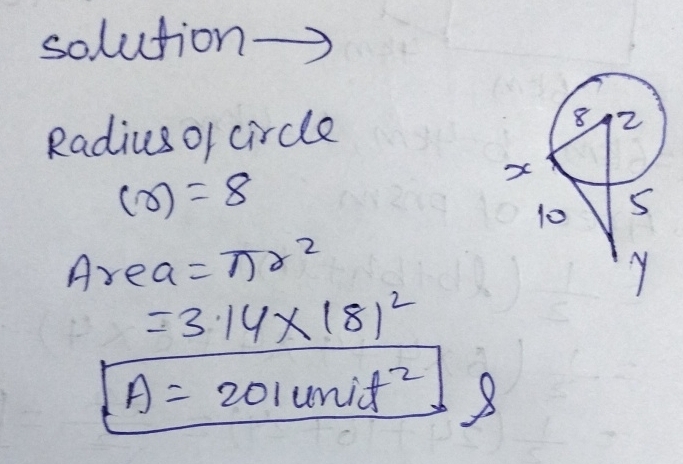 solution →
Radius of circle
(r) = 8
Area = πr²
= 3.14 × (8)²
A = 201 unit²
8 z
x
10 5
y